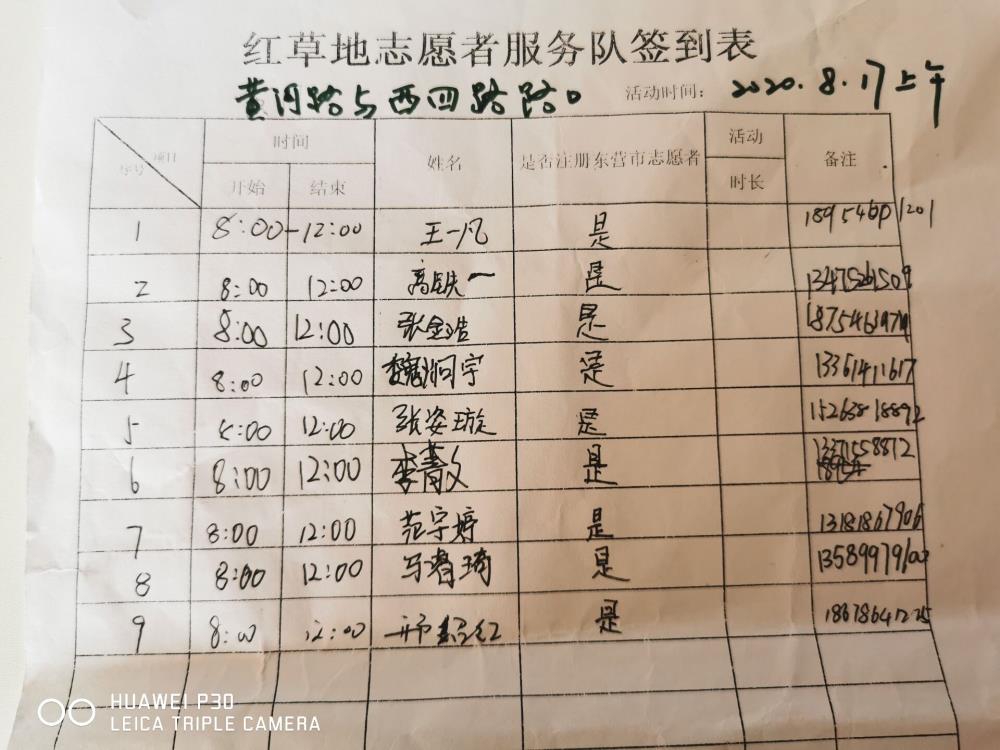 红草地志愿者服务队签到表
黄河路与西四路路口 活动时间: 2020.8.17上午
项目 序号 时间 姓名 是否注册东营市志愿者 活动 备注
开始 结束 时长
1 8:00-12:00 王一凡 是 18954601201
2 8:00 12:00 高铁一 是 13475261509
3 8:00 12:00 张金浩 是
4 8:00 12:00 魏润宇 是 13361411617
5 8:00 12:00 张姿璇 是 15263818892
6 8:00 12:00 李 文 是 13371558812
7 8:00 12:00 范宇婷 是 13181867906
8 8:00 12:00 马春琦 是
9 8:00 12:00 是
HUAWEI P30
LEICA TRIPLE CAMERA